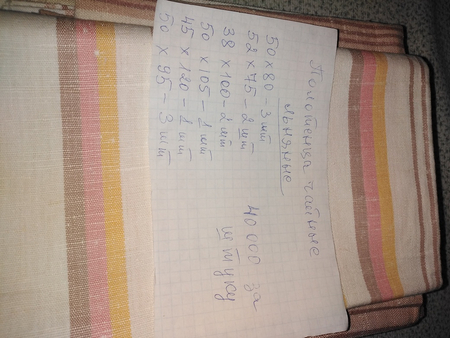 Полотенца чайные
льняные
50 х 80 - 3 шт
52 х 75 - 2 шт
38 х 100 - 2 шт
50 х 105 - 1 шт
45 х 120 - 1 шт
50 х 95 - 3 шт
за
штуку